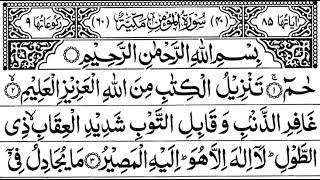 اٰیَاتُهَا ٨٥ (٤٠) سُوْرَةُ الْمُؤْمِنِ مَكِّیَّةٌ (٦٠) رُكُوْعَاتُهَا ٩
بِسْمِ اللّٰهِ الرَّحْمٰنِ الرَّحِیْمِ
حٰمٓ ۚ﴿۱﴾ تَنْزِیْلُ الْكِتٰبِ مِنَ اللّٰهِ الْعَزِیْزِ الْعَلِیْمِ ۙ﴿۲﴾
غَافِرِ الذَّنْۢبِ وَ قَابِلِ التَّوْبِ شَدِیْدِ الْعِقَابِ ۙ ذِی
الطَّوْلِ ؕ لَاۤ اِلٰهَ اِلَّا هُوَ ؕ اِلَیْهِ الْمَصِیْرُ ﴿۳﴾ مَا یُجَادِلُ فِیْۤ